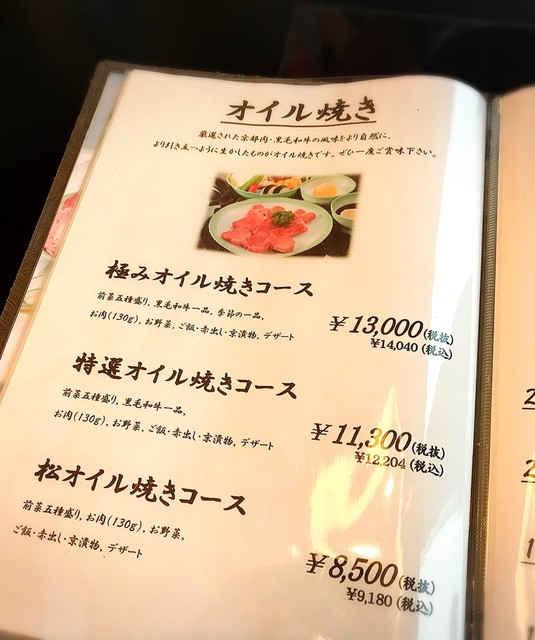 オイル焼き
厳選された京都肉・黒毛和牛の風味をより自然に、
より引き立つように生かしたものがオイル焼きです。ぜひ一度ご賞味下さい。
極みオイル焼きコース
前菜五種盛り、黒毛和牛一品、季節の一品、
お肉(130g)、お野菜、ご飯・赤出し・京漬物、デザート
￥13,000(税抜)
¥14,040 (税込)
特選オイル焼きコース
前菜五種盛り、黒毛和牛一品、
お肉(130g)、お野菜、ご飯・赤出し・京漬物、デザート
￥11,300(税抜)
¥12,204 (税込)
松オイル焼きコース
前菜五種盛り、お肉(130g)、お野菜、
ご飯・赤出し・京漬物、デザート
￥8,500(税抜)
¥9,180 (税込)